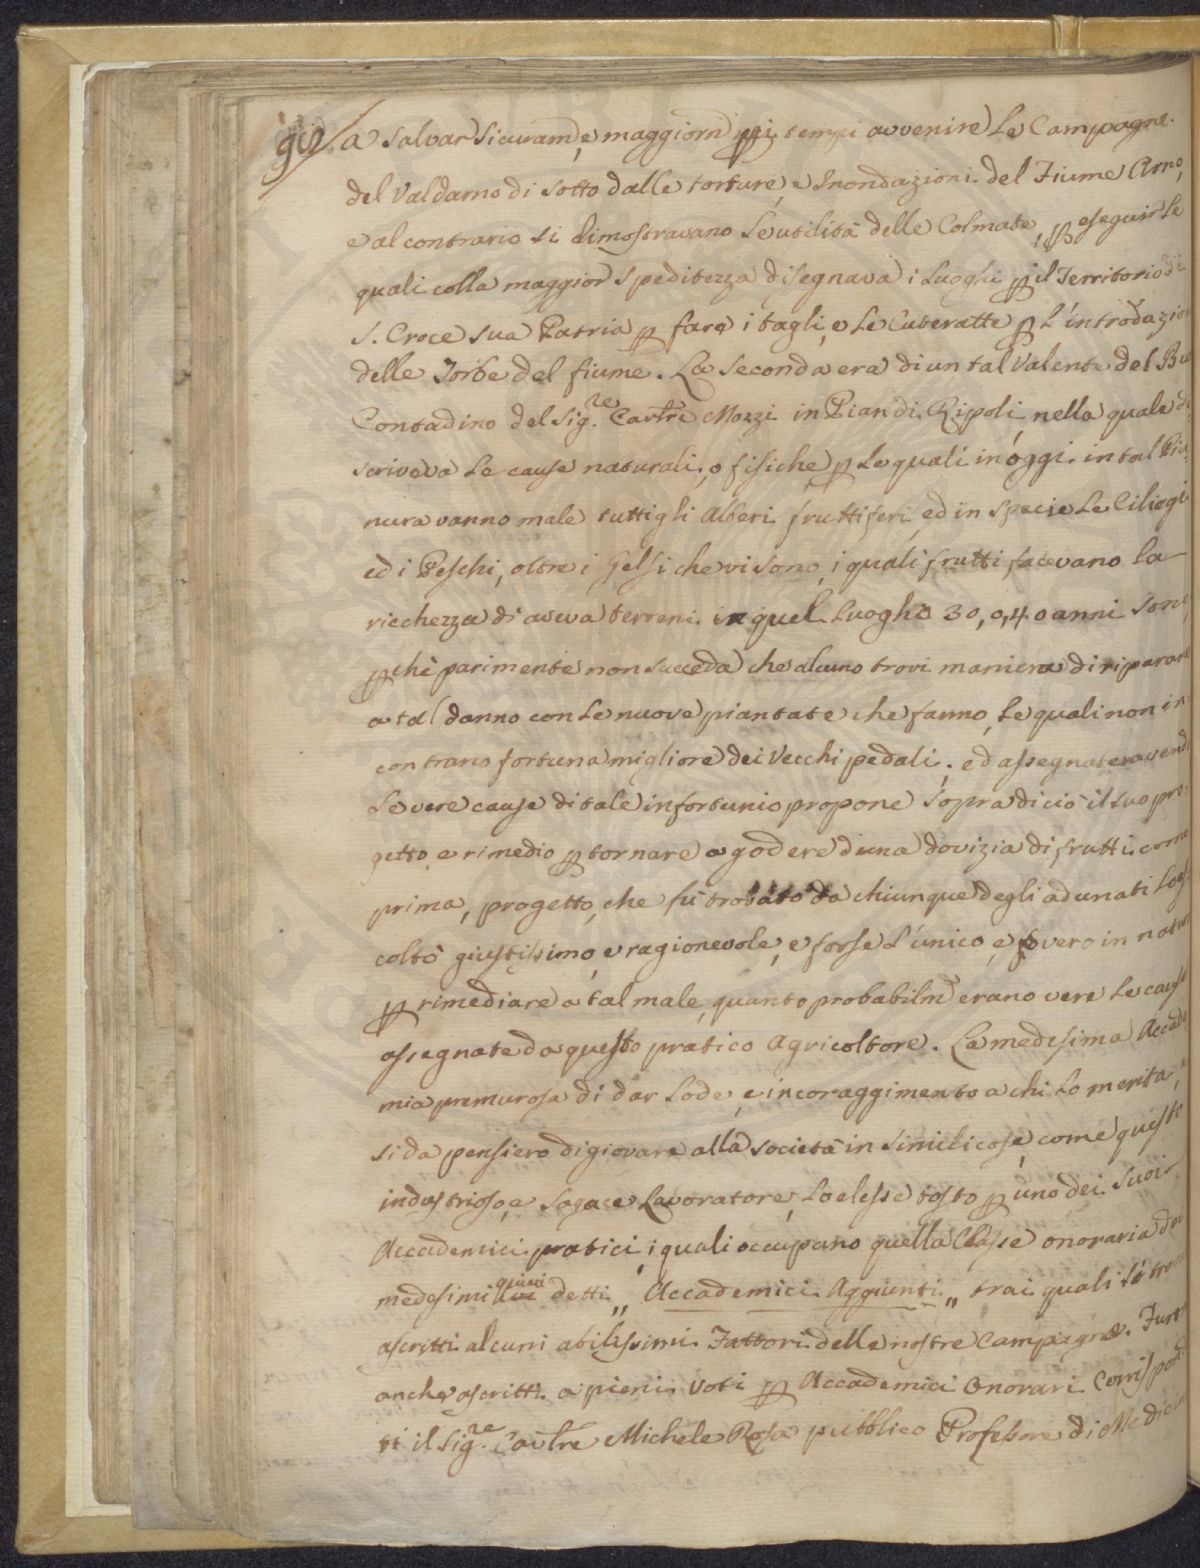 gio a salvar sicuram.e, e maggiorm.e p. i tempi avvenire le Campagne
del Valdarno di sotto dalle torture, e Inondazioni del Fiume Arno,
e al contrario si dimostravano le utilità delle Colmate, p. eseguir le
quali colla maggior speditezza disegnava i luoghi p. il Territorio di
S. Croce sua Patria p. fare i tagli, e le Cateratte p. l'introdazion
delle Torbe del fiume. La seconda era di un tal Valente del Bu
Contadino del Sig.re Cav.re Mozzi in Pian di Ripoli nella quale de
scriveva le cause naturali, o fisiche, p. le quali in oggi in tal Pia
nura vanno male tutti gli Alberi fruttiferi, ed in specie le Ciliegi
ed i Peschi, oltre i Gelsi che vi sono, i quali frutti facevano la
ricchezza di aveva terreni in quel luogho 30, o 40 anni sono,
p.chè parimente non succeda che alcuno trovi maniera di riparare
a tal danno con le nuove piantate che fanno, le quali non in
contrano fortuna migliore dei vecchi pedali; ed assegnate avend
le vere cause di tale infortunio propone sopra di ciò il suo pro
getto, e rimedio p. tornare a godere d'una dovizia di frutti come
prima, progetto, che fù trovato da chiunque degli adunati
colto giustissimo, e ragionevole, e forse l'unico, e vero in natur
p. rimediare a tal male, quanto probabilm.e erano vere le cause
assegnate da questo pratico Agricoltore. La medesima Accade
mia premurosa di dar lode, e incoraggimento a chi lo merita, e
si da pensiero di giovare alla società in simili cose, come questo
industrioso, e sagace Lavoratore, lo elesse tosto p. uno dei suoi
Accademici pratici, i quali occupano quella Classe onoraria dei
medesimi quivi detti „ Accademici Aggiunti „ trai quali si trovano
ascritti alcuni abilissimi Fattori delle nostre Campagne. Furo
anche ascritti a pieni Voti p. Accademici Onorari Corrispond
ti il Sig.re Cav.re Michele Rosa pubblico Professore di Medicin